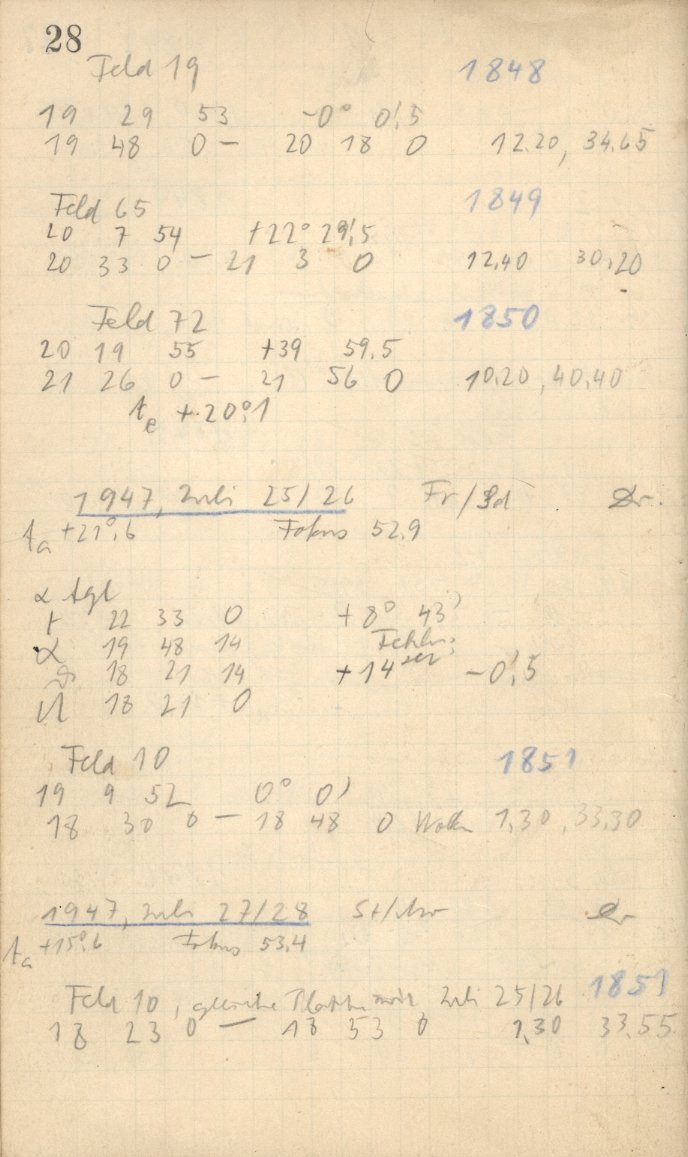 28
Feld 19 1848
19 29 53 -0° 0!5
19 48 0 - 20 18 0 12.20, 34.65
Feld 65 1849
20 7 54 +22° 29!5
20 33 0 - 21 3 0 12,40 30,20
Feld 72 1850
20 19 55 +39 59.5
21 26 0 - 21 56 0 10.20, 40,40
te +20°1
1947, Juli 25/26 Fr/Sd Dr.
ta +21°,6 Fokus 52,9
α Aql
t 22 33 0 + 8° 43'
α 19 48 14 Fehler:
18 21 14 + 14 sec - 0!5
U 18 21 0
Feld 10 1851
19 9 52 0° 0'
18 30 0 - 18 48 0 Wolken 1,30, 33,30
1947, Juli 27/28
ta +15°,6 Fokus 53,4
Feld 10, gleiche Platte wie Juli 25/26 1851
18 23 0 - 18 53 0 1,30 33,55